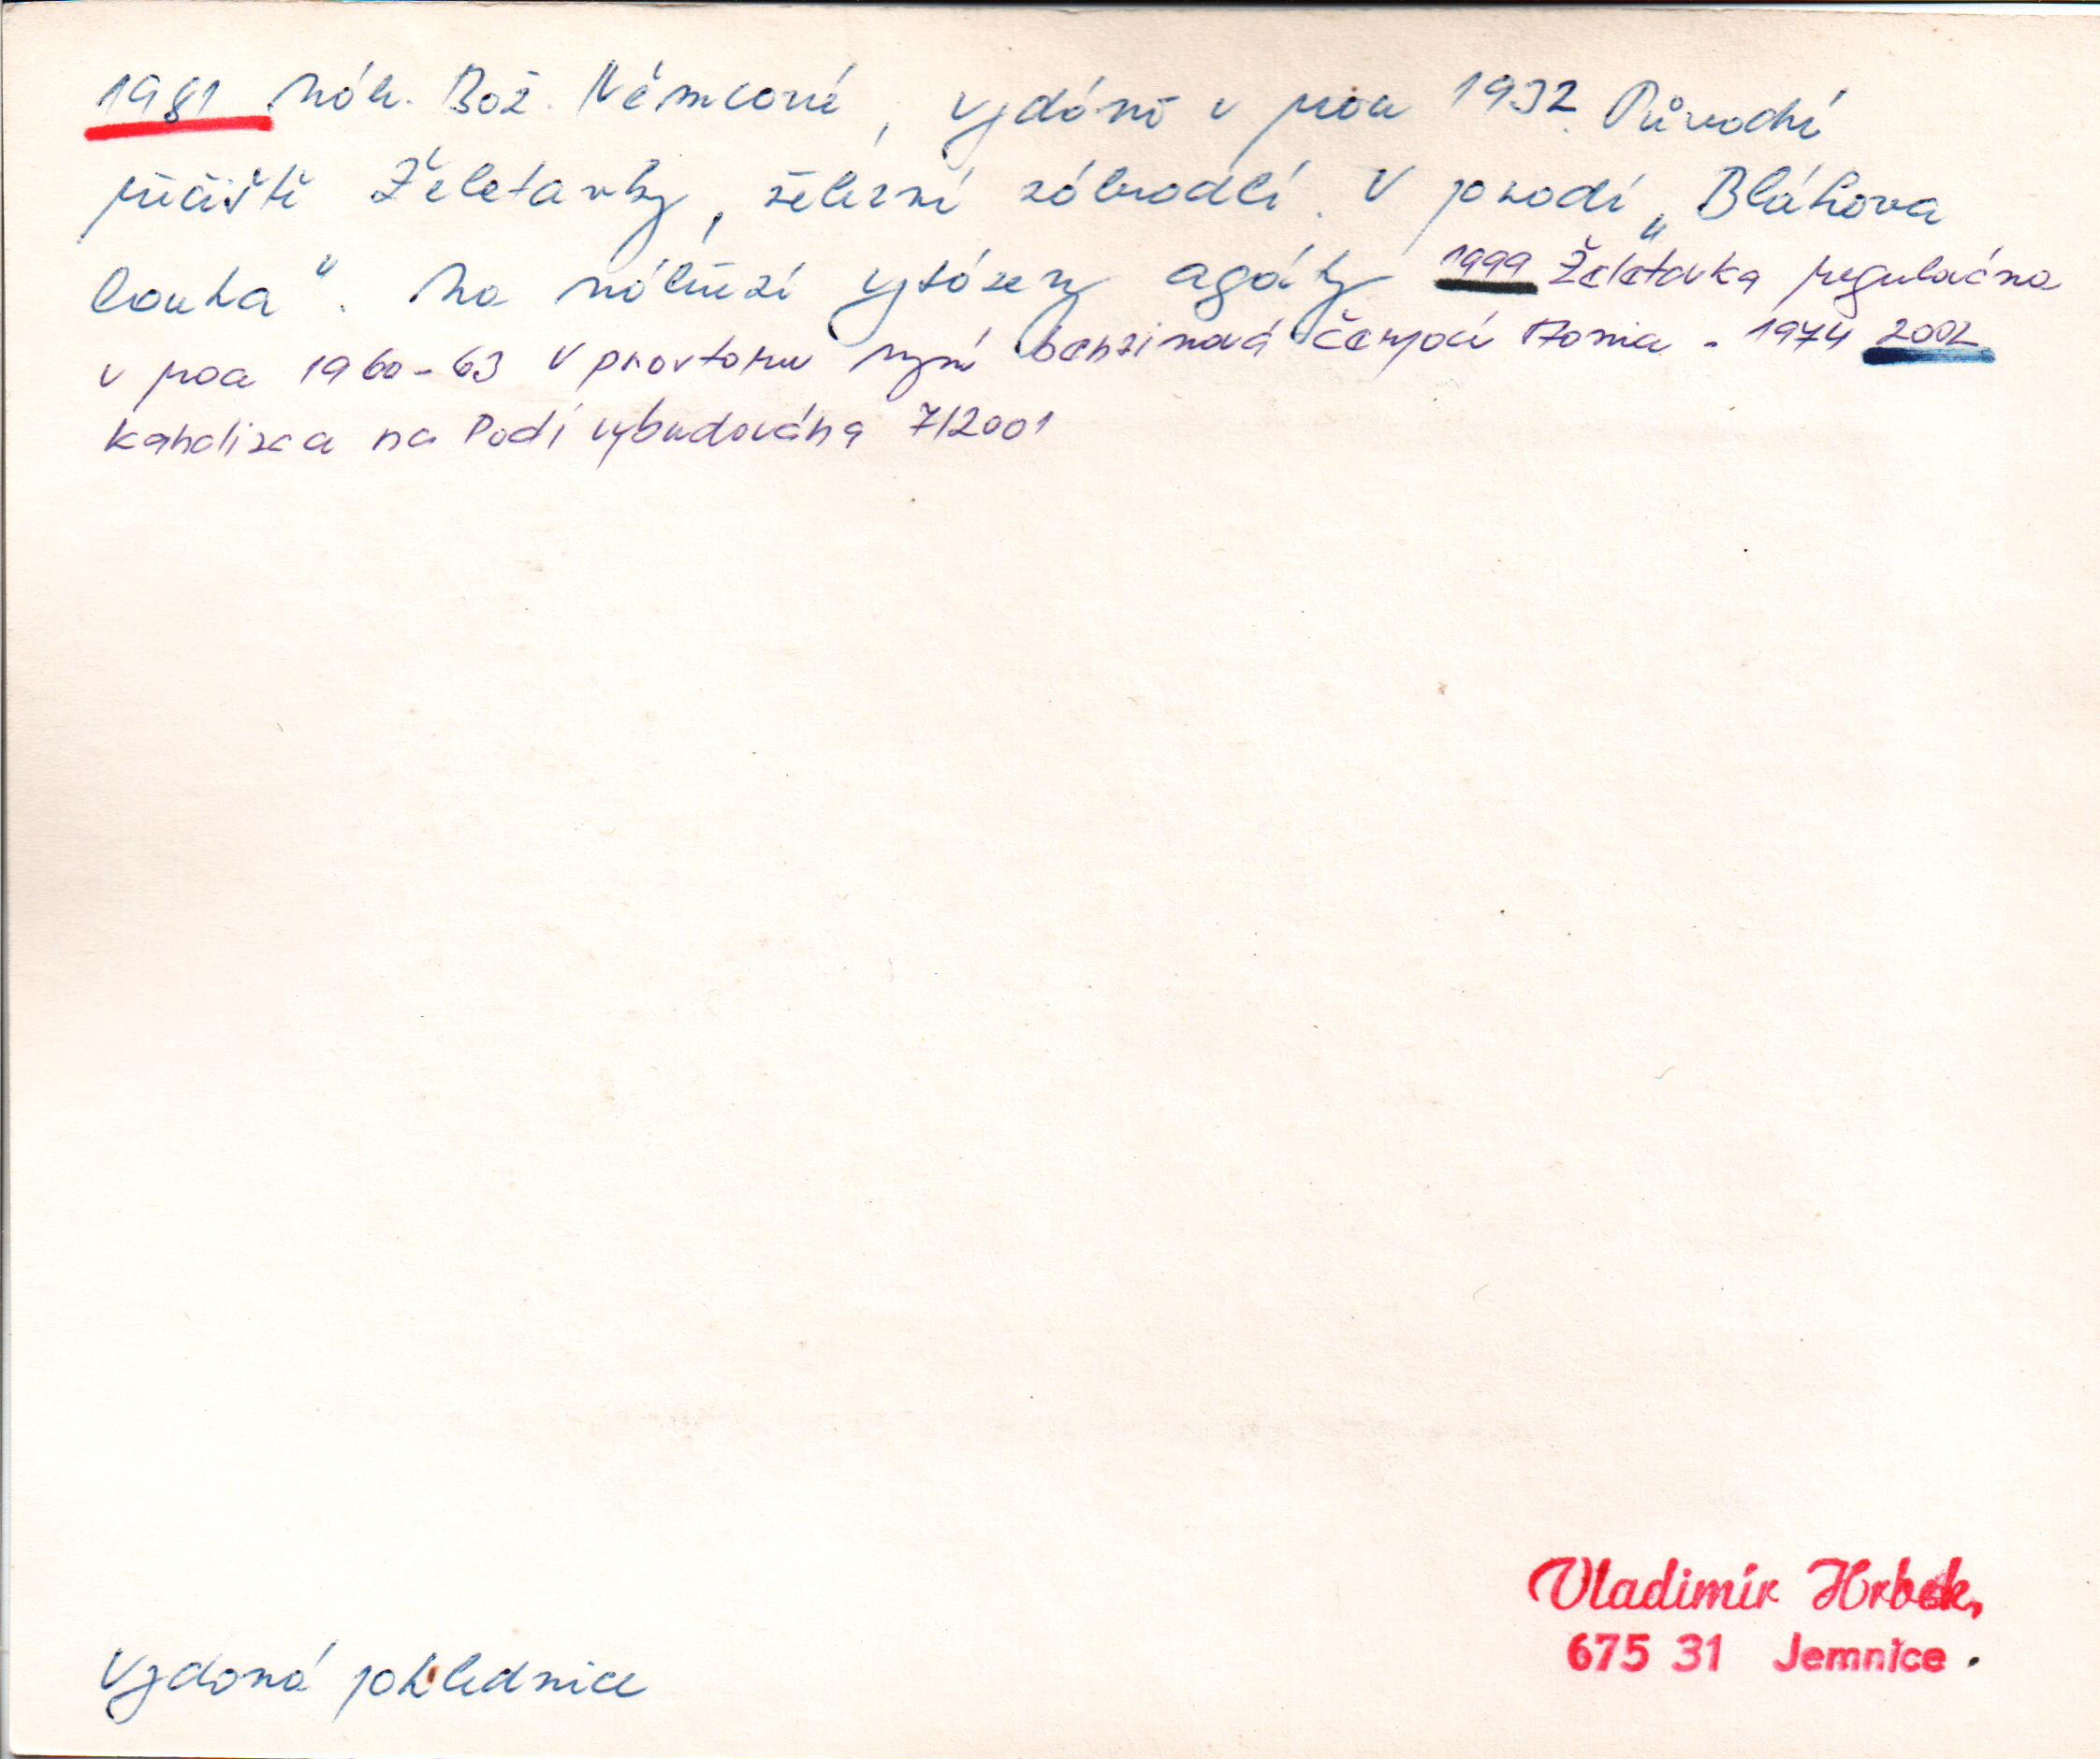 1981 Náb. Bož. Němcové, vydáno v roce 1932. Původní
řičiště Želetavky, železní zábradlí. V pozadí „Bláhova
louka". Na nábřeží vysázeny agáty 1999 Želetavka regulována
v roce 1960-63 V prostoru nyní benzinová čerpací stanice - 1974 2002
kanalizace na Podolí vybudována 7/2001
Vydaná pohlednice
Vladimír Hrbek,
675 31 Jemnice.